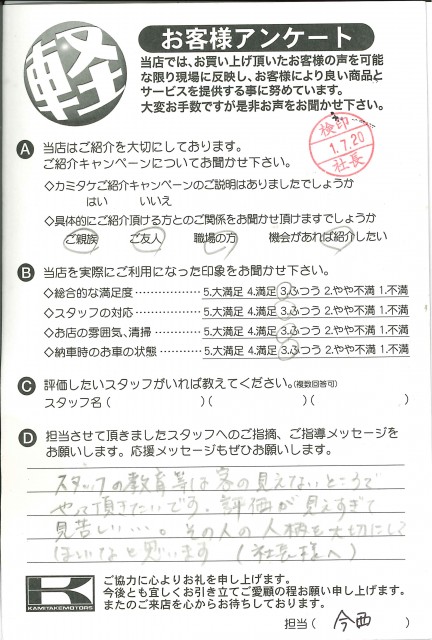 軽
お客様アンケート
当店では、お買い上げ頂いたお客様の声を可能
な限り現場に反映し、お客様により良い商品と
サービスを提供する事に努めています。
大変お手数ですが是非お声をお聞かせ下さい。
検印
1.7.20
社長
A 当店はご紹介を大切にしております。
ご紹介キャンペーンについてお聞かせ下さい。
◇カミタケご紹介キャンペーンのご説明はありましたでしょうか
はい いいえ
◇具体的にご紹介頂ける方とのご関係をお聞かせ頂けますでしょうか
ご親族 ご友人 職場の方 機会があれば紹介したい
B 当店を実際にご利用になった印象をお聞かせ下さい。
◇総合的な満足度 ‥‥‥‥‥‥ 5.大満足 4.満足 3.ふつう 2.やや不満 1.不満
◇スタッフの対応 ‥‥‥‥‥‥ 5.大満足 4.満足 3.ふつう 2.やや不満 1.不満
◇お店の雰囲気、清掃 ‥‥‥‥ 5.大満足 4.満足 3.ふつう 2.やや不満 1.不満
◇納車時のお車の状態 ‥‥‥‥ 5.大満足 4.満足 3.ふつう 2.やや不満 1.不満
C 評価したいスタッフがいれば教えてください。(複数回答可)
スタッフ名 ( )( )( )
D 担当させて頂きましたスタッフへのご指摘、ご指導メッセージを
お願いします。応援メッセージもぜひお願いします。
スタッフの教育等は客の見えないところで
やって頂きたいです。評価が見えすぎて
見苦しい…。その人の人柄も大切にして
ほしいなと思います (社長様へ)
K
KAMITAKE MOTORS
ご協力に心よりお礼を申し上げます。
今後とも宜しくお引き立てご愛顧の程お願い申し上げます。
またのご来店を心からお待ちしております。
担当 ( 今西 )